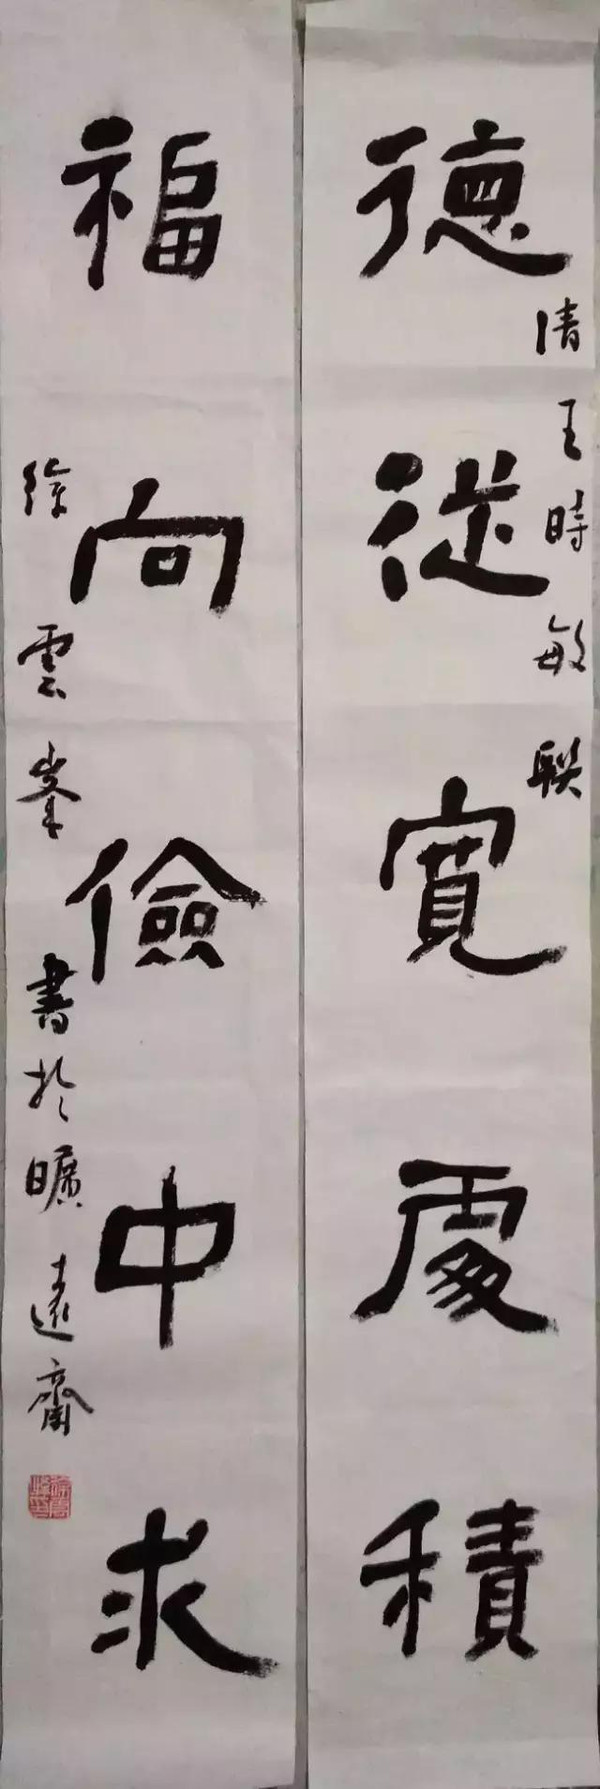 德從寬處積
清王時敏联
福向儉中求
徐雲峯書於曠遠齋